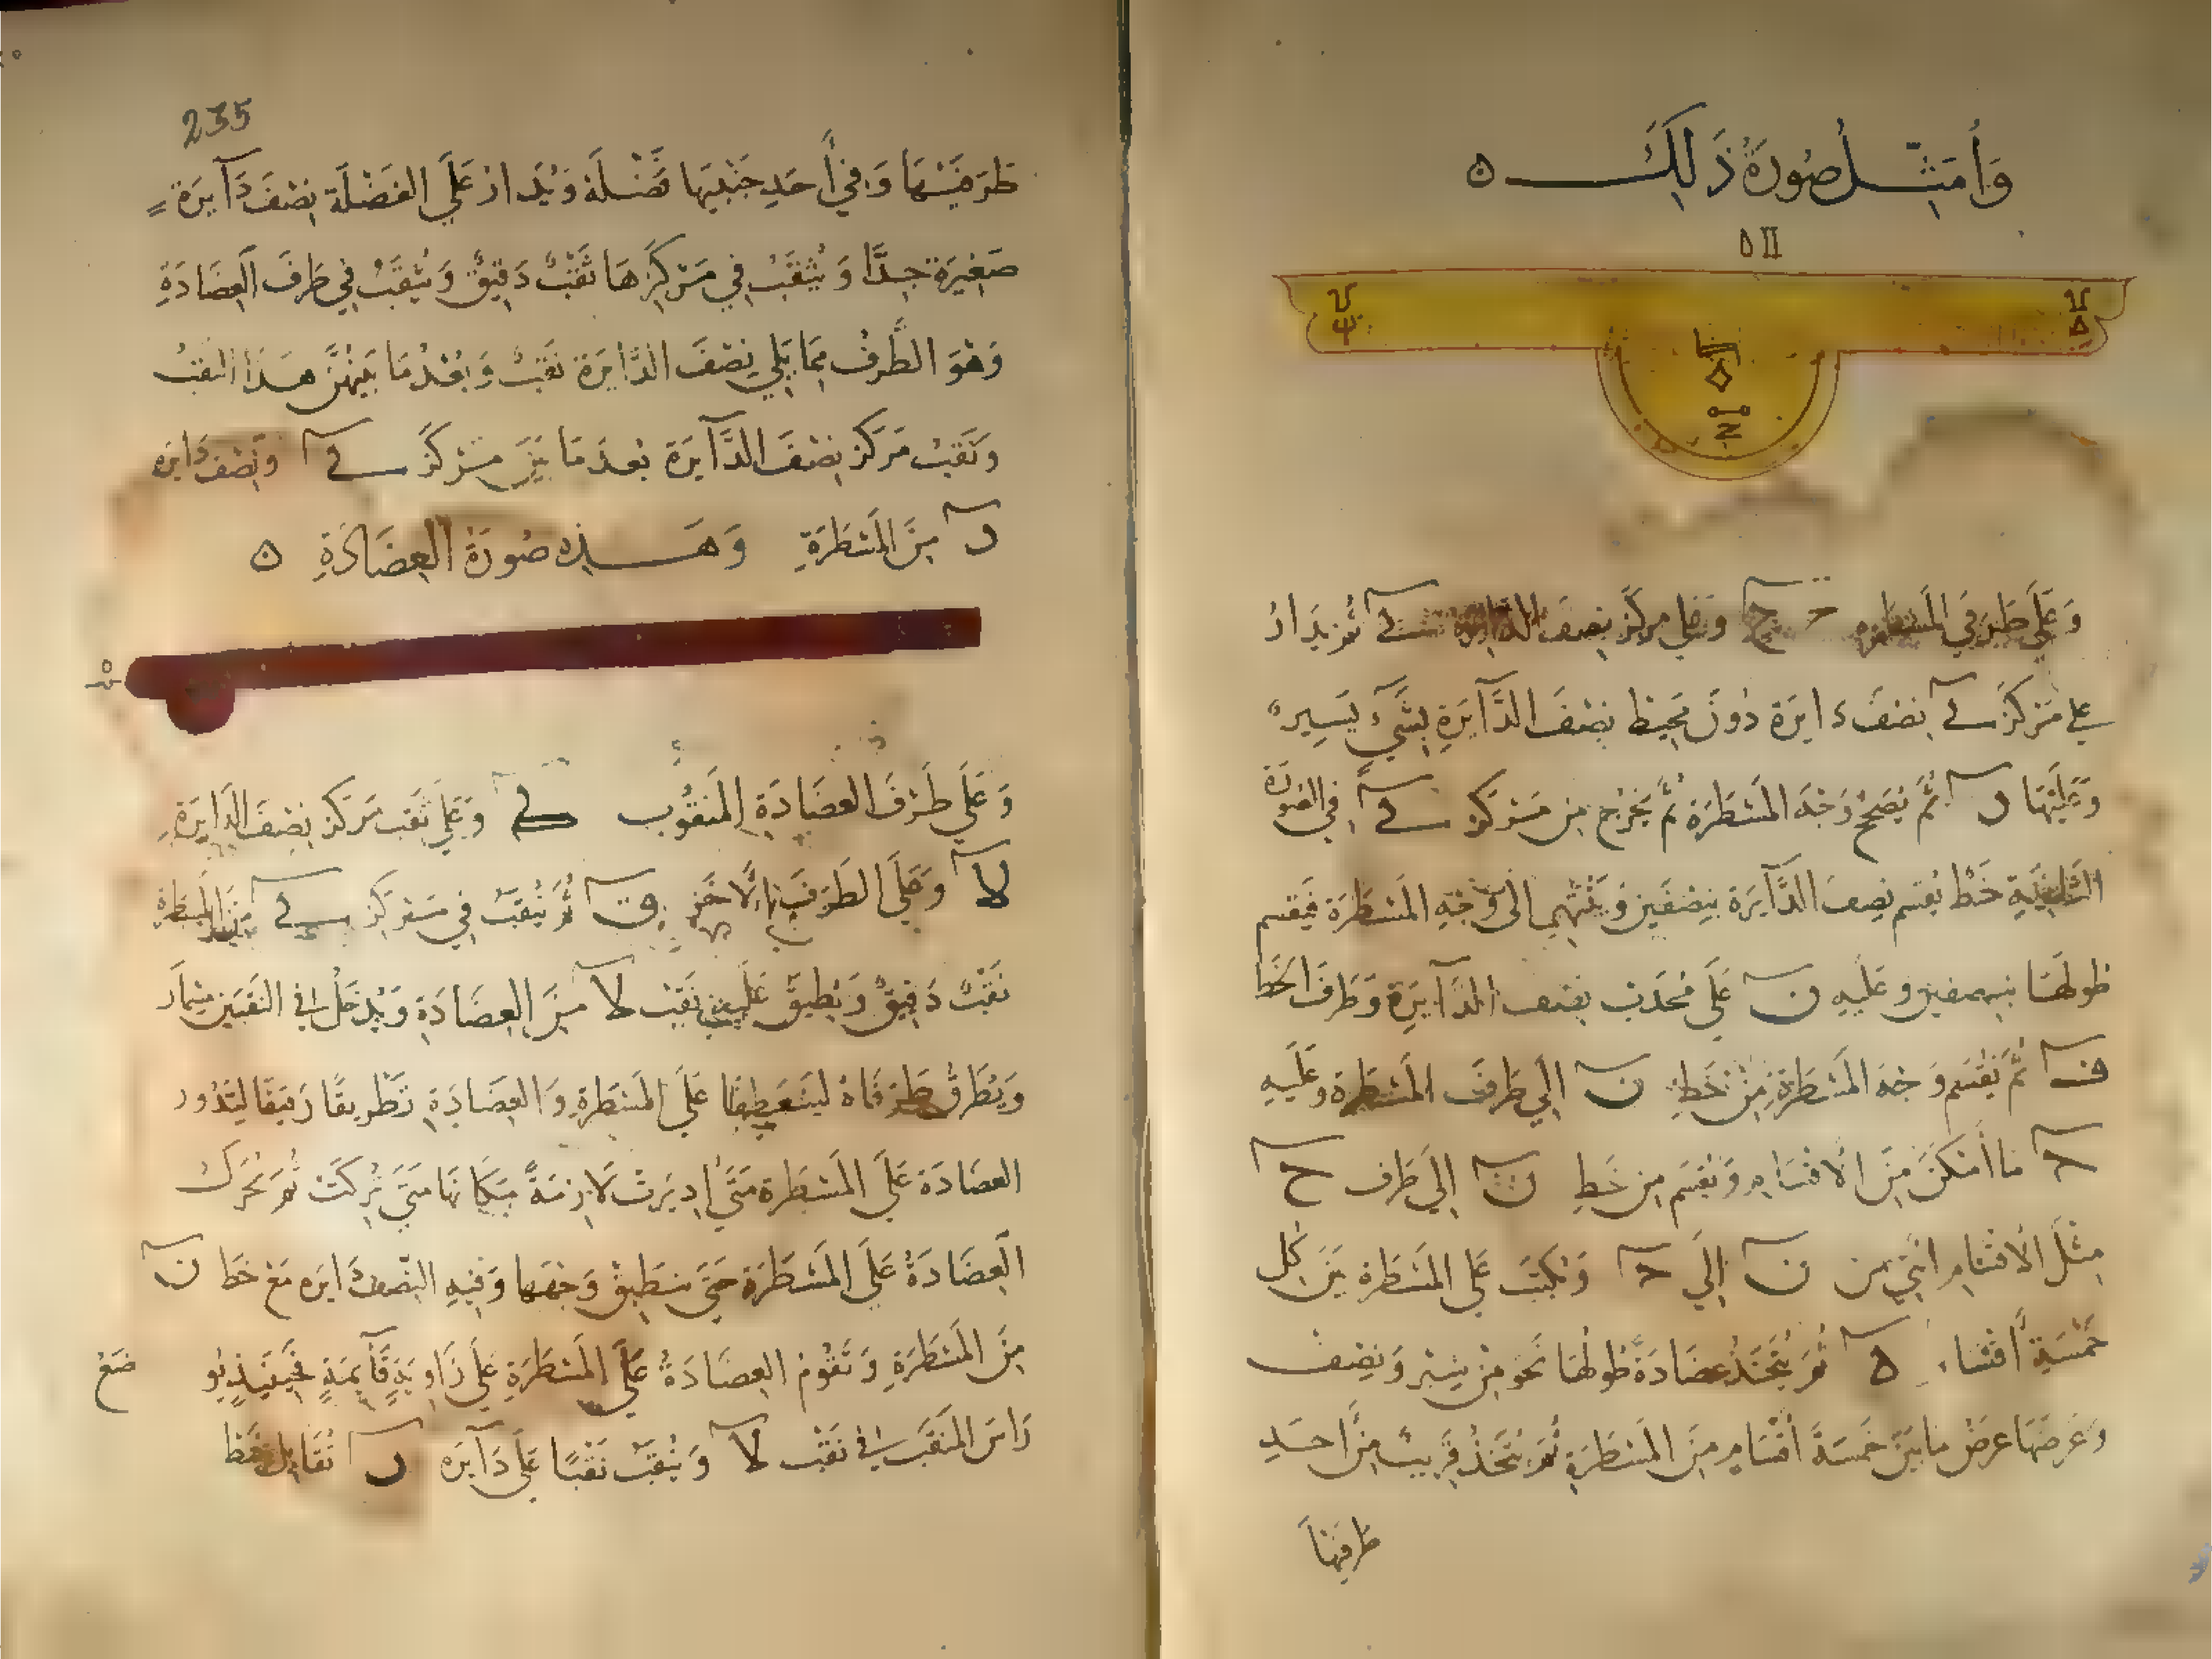 وَأُمَثِّلُ صُورَةَ ذَلِكَ ه
وَعَلَى طَرَفَي المَسْطَرَةِ ح ج وَعَلَى مركَزِ نِصفِ الدَّايِرَةِ ثُمَّ يُدَارُ
عَلَى مَرْكَزِ نِصْفُ دَايِرَة دُونَ مُحِيط نِصْفِ الدَّآيِرَةِ بِشَيْءٍ يَسِيرٍ
وَعَلَيْهَا ر ثُمَّ يُصَحَّحُ وَجْهُ المَسْطَرَةِ ثُمَّ يُخْرَجُ مِن مَرْكَزِ فِي الصُّورَة
خَطٌّ يُقسَمُ نِصفَ الدَّآيِرَة بِنِصْفَينِ وَيَنْتَهِي الَى وَجْهِ المَسْطَرَة فَيَقسِم
طُولَهَا بنصفين وعَلَيهِ ن عَلَى مُحَدَّبِ نصف الدَّآيِرَةِ وَطَرَفَ الخَط
ف ثُمَّ يُقْسَم وَجْهُ المَسْطَرَةِ مِنْ خَطِّ ن الَي طَرَفِ المَسْطَرَة وَعَلَيهِ
ح مَا أَمْكَنَ مِنَ الْاَقْسَامِ وَيُقْسَم مِن خَطِ ن الَي طَرَف ج
مِثْلَ الْاَقْسَامِ الَّتِي مِن ن الَي ح وَيُكتَبُ عَلَى المَسْطَرَة بَيْنَ كُل
خَمْسَةِ أَقْسَام ه ثُمَّ يُتَّخَذُ عِضَادَةٌ طُولُهَا نَحْو مِنْ شِبْرٍ وَنِصْف
وَعَرضُهَا عَرض مَا بَيْنَ خَمسَة أَقْسَامٍ مِنَ المَسْطَرَةِ ثُمَّ يُتَّخَذُ قَرِيب مِنْ أَحَدِ
طَرَفَيْهَا
235
طَرَفَيْهَا وَفِي أَحَدِ جَنْبَيْهَا فَضْلَة وَيُدَارُ عَلَي الفَضْلَةِ نِصْفُ دَآيِرَةٍ
صَغِيرَةٍ جِدًّا وَيُثقَبُ فِي مَرْكَزِهَا ثَقْبٌ دَقِيقٌ وَيُثْقَبُ فِي طَرَفِ العِضَادَةِ
وَهُوَ الطَّرَفُ مِمَا يَلِي نِصْفَ الدَّايِرَة ثقْبٌ وَبُعْدُ مَا بَيْنَ هَذَا الثقبُ
وَثَقْبُ مَركَزِ نِصْفِ الدَّآيِرَة بُعدُ مَا بَيْنَ مَرْكَز وَنِصْف دَايِرَه
ر مِنَ المَسْطَرَةِ وَهَذِهِ صُورَةُ العِضَادَةِ ه
وَعَلَي طَرَفِ العضَادَةِ المَثقُوب ك وَعَلَى ثَقْبِ مَركَز نِصفِ الدَّايِرَةِ
لا وَعَلَي الطَرَف الْاَخَرِ ق ثُمَّ يُثقَبُ فِي مَركَز مِنَ المَسطرَةِ
ثَقْبٌ دَقِيقٌ وَيُطبَقُ عَلَيهِ ثَقْبُ لا مِنَ العِضَادَةِ وَيُدْخَلُ فِي الثقْبَينِ مِسمَار
وَيُطَرَّقُ طَرَفَاهُ لِيَنعَطِفَا عَلَى المَسْطَرَةِ وَالعِضَادَةِ تَطْرِيقًا رَفِيقًا لِتَدُور
العضَادَة عَلَي المَسْطَرَة مَتَى أُدِيرَتْ لَازِمَةً مَكَانَهَا مَتَى تُرِكَتْ ثُمَّ تُحَرَّك
العِضَادَةُ عَلَي المَسْطَرَة حَتَى يَنطَبِقُ وَجْهَهَا وَفِيهِ النِّصفُ دَايرَه مَع خَطِ ن
مِنَ المَسْطَرَةِ وَتَقُومُ العِضَادَةُ عَلَى المَسْطَرَةِ عَلَى زَاوِيَةٍ قَآيِمَةٍ فَحِينَيذٍ يُوضَعُ
رَاسَ المِثْقَبِ فِي ثَقْبِ لا وَيُثقَبُ ثَقْبًا عَلَى دَآيِرَه ر تُقَابِل خَط